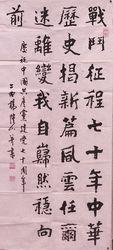 戰鬥征程七十年中華
歷史揭新篇風雲任爾
迷離變我自巋然穩向
前
慶祝中國共產黨建黨七十周年